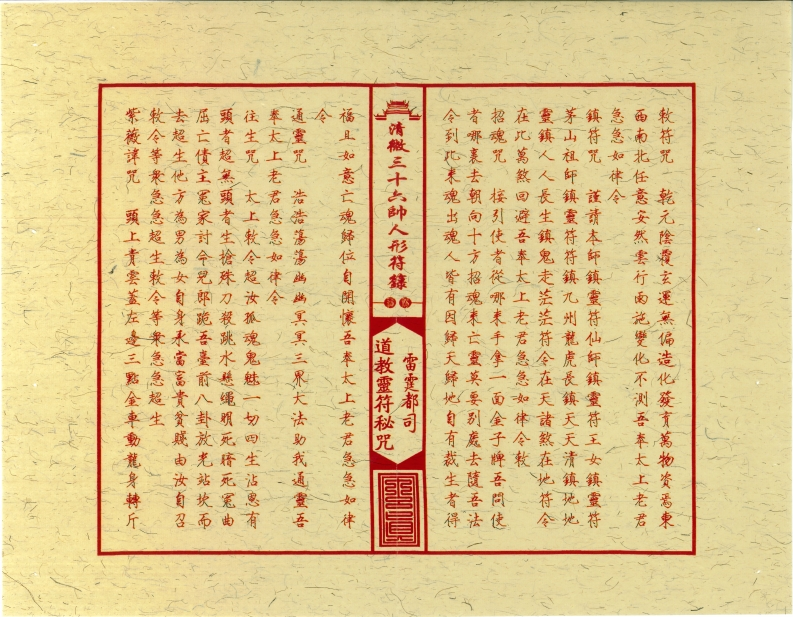 敕符咒 乾元陰霞玄運無偏造化發育萬物資焉東
西南北任意安然雲行雨施變化不測吾奉太上老君
急急如律令
鎮符咒 謹請本師鎮靈符仙師鎮靈符王女鎮靈符
茅山祖師鎮靈符符鎮九州龍虎長鎮天天清鎮地地
靈鎮人人長生鎮鬼走茫茫符令在天諸煞在地符令
在此萬煞回避吾奉太上老君急急如律令敕
招魂咒 接引使者從哪來手拿一面金子牌吾問使
者哪裏去朝向十方招魂來亡靈莫要別處去隨吾法
令到此來魂出魂人皆有因歸天歸地自有裁生者得
清微三十六帥人形符籙
雷霆都司
道教靈符秘咒
福且如意亡魂歸位自開懷吾奉太上老君急急如律
令
通靈咒 浩浩蕩蕩幽幽冥冥三界大法助我通靈吾
奉太上老君急急如律令
往生咒 太上敕令超汝孤魂鬼魅一切四生沾恩有
頭者超無頭者生槍殊刀殺跳水懸繩明死暗死冤曲
屈亡債主冤家討命兒郎跪吾臺前八卦放光站坎而
去超生他方為男為女自身承當富貴貧賤由汝自召
敕令等衆急急超生敕令等衆急急超生
紫薇諱咒 頭上青雲蓋左邊三點金車動龍身轉斤